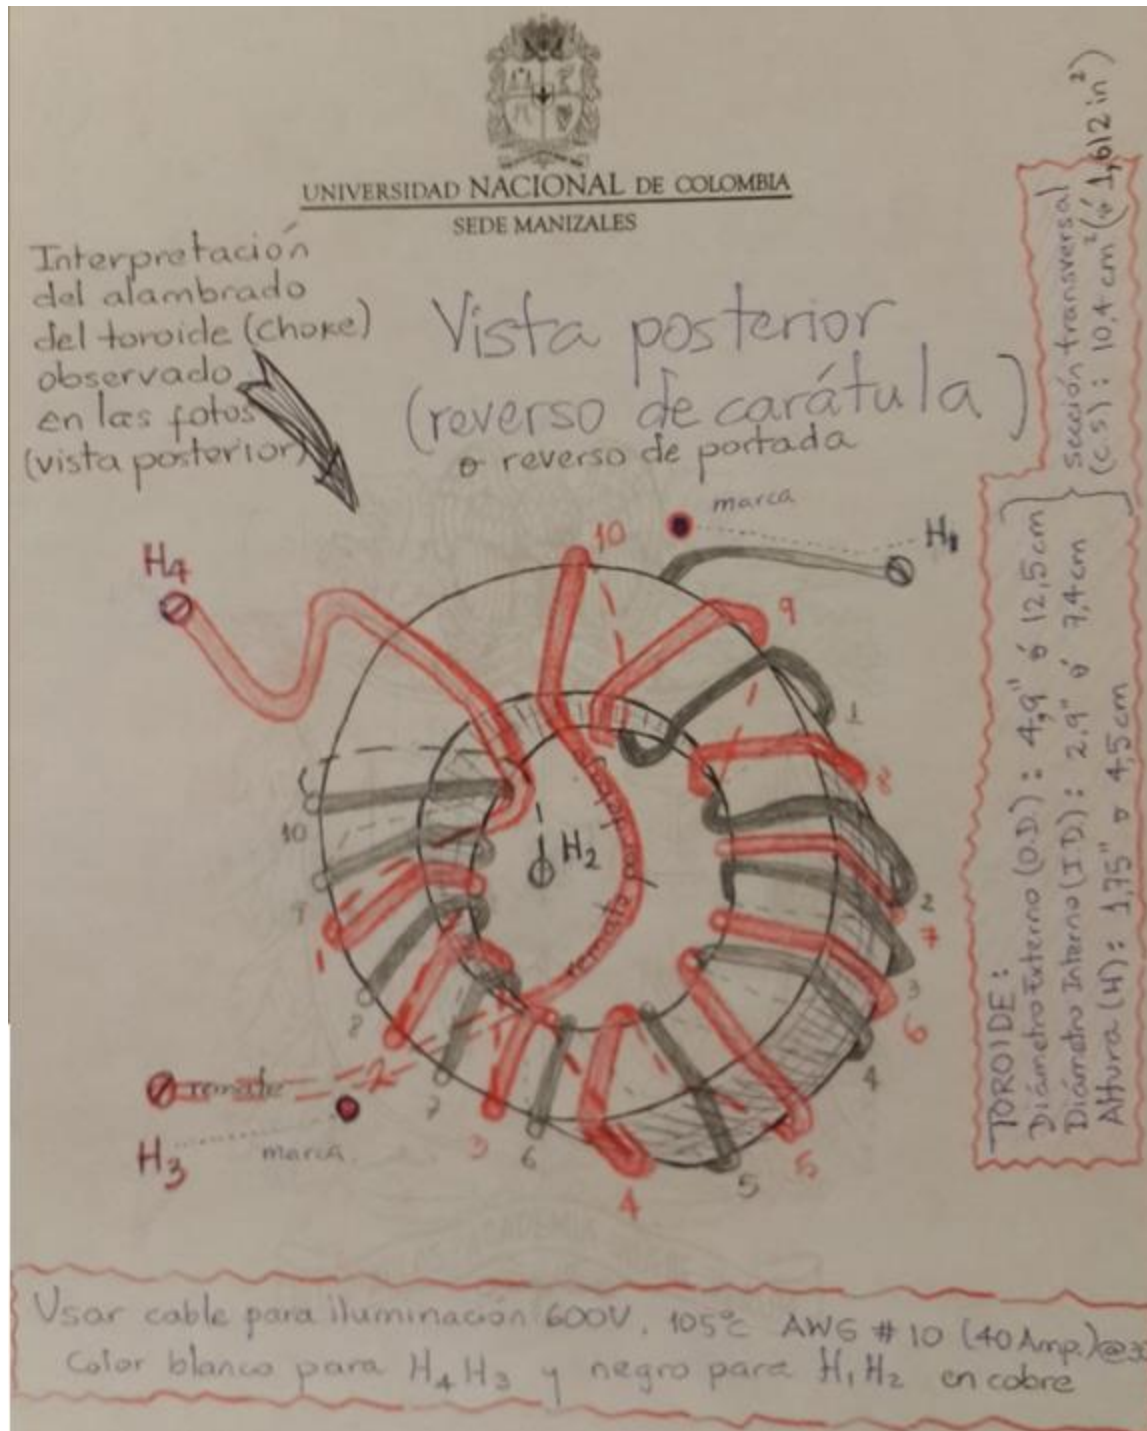 UNIVERSIDAD NACIONAL DE COLOMBIA
SEDE MANIZALES
Interpretación
del alambrado
del toroide (choke)
observado
en las fotos
(vista posterior)
Vista posterior
(reverso de carátula)
o reverso de portada
marca
H1
H4
10
9
1
8
2
7
3
6
4
5
5
4
6
3
7
2
8
1
9
10
H2
remate por debajo
remate
H3
marca
TOROIDE:
Diámetro Externo (O.D.): 4,9" ó 12,5cm
Diámetro Interno (I.D.): 2,9" ó 7,4cm
Altura (H): 1,75" o 4,5cm
sección transversal
(c.s): 10,4 cm² (ó 1,612 in²)
Usar cable para iluminación 600V. 105°c AWG # 10 (40 Amp.)@30
Color blanco para H4H3 y negro para H1H2 en cobre